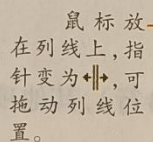 鼠标放
在列线上,指
针变为↔,可
拖动列线位
置。